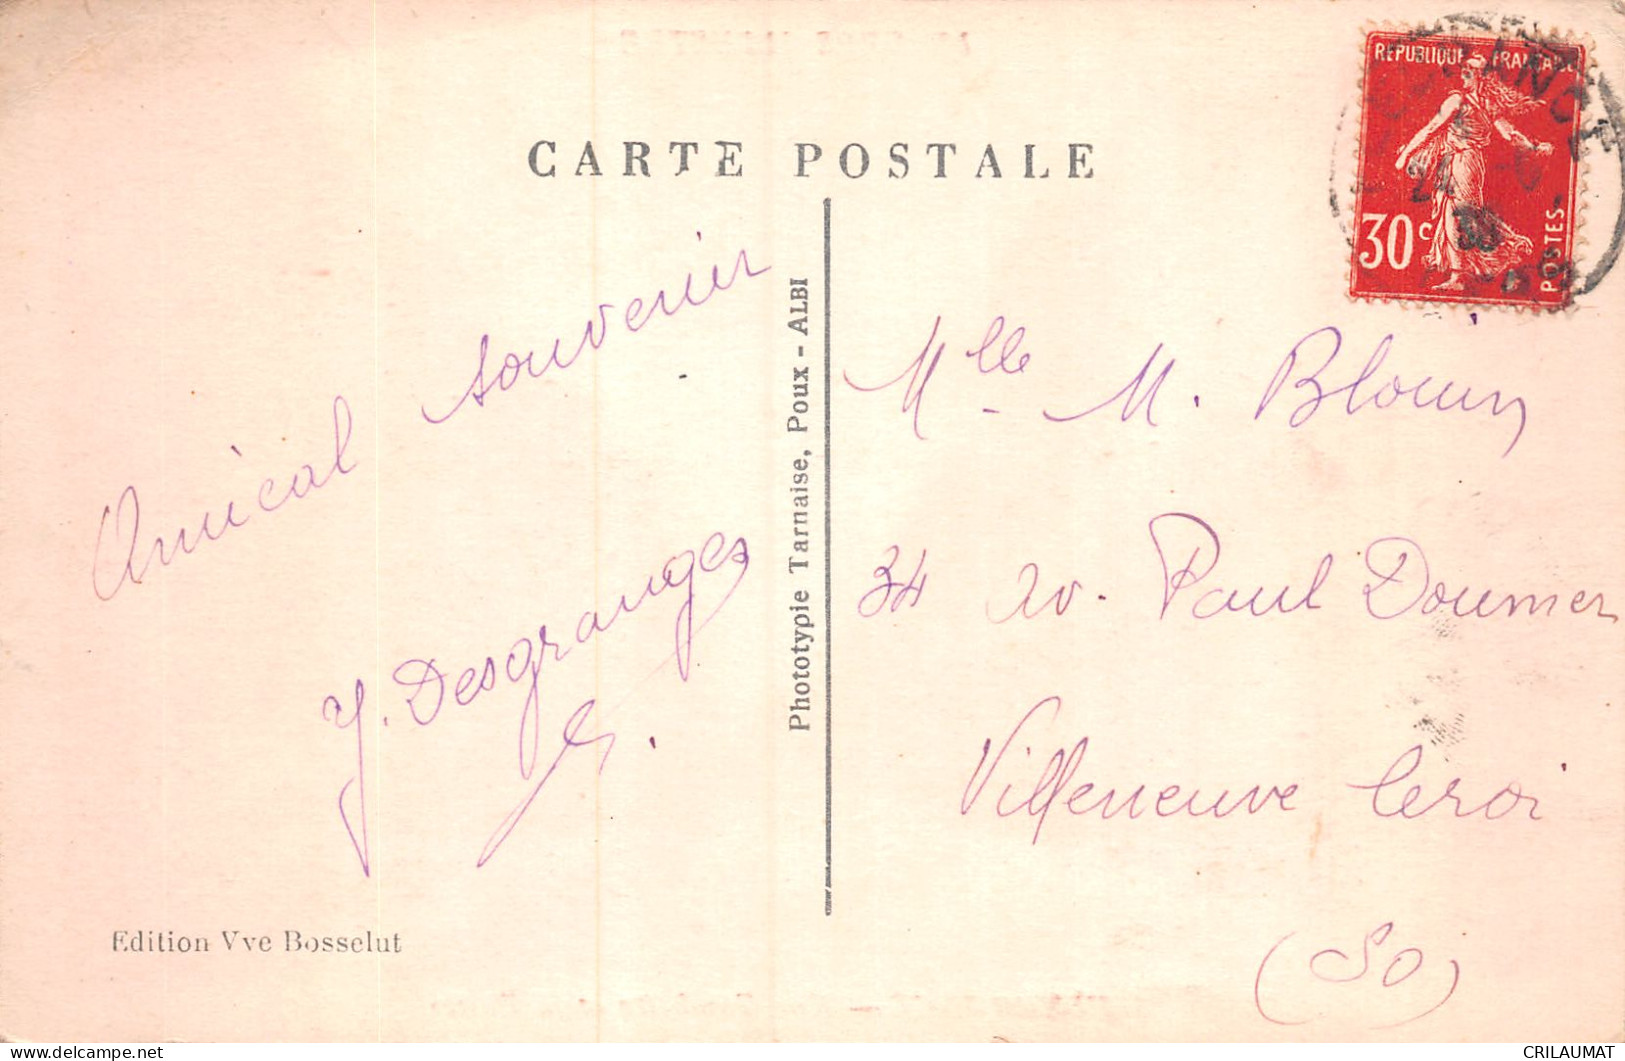 CARTE POSTALE
REPUBLIQUE FRANÇAISE
30 c
POSTES
24
Amical souvenir
Y. Desgranges
Mlle M. Blouin
34 av. Paul Doumer
Villeneuve leroi
(SO)
Phototypie Tarnaise, Poux - ALBI
Edition Vve Bosselut
CRILAUMAT